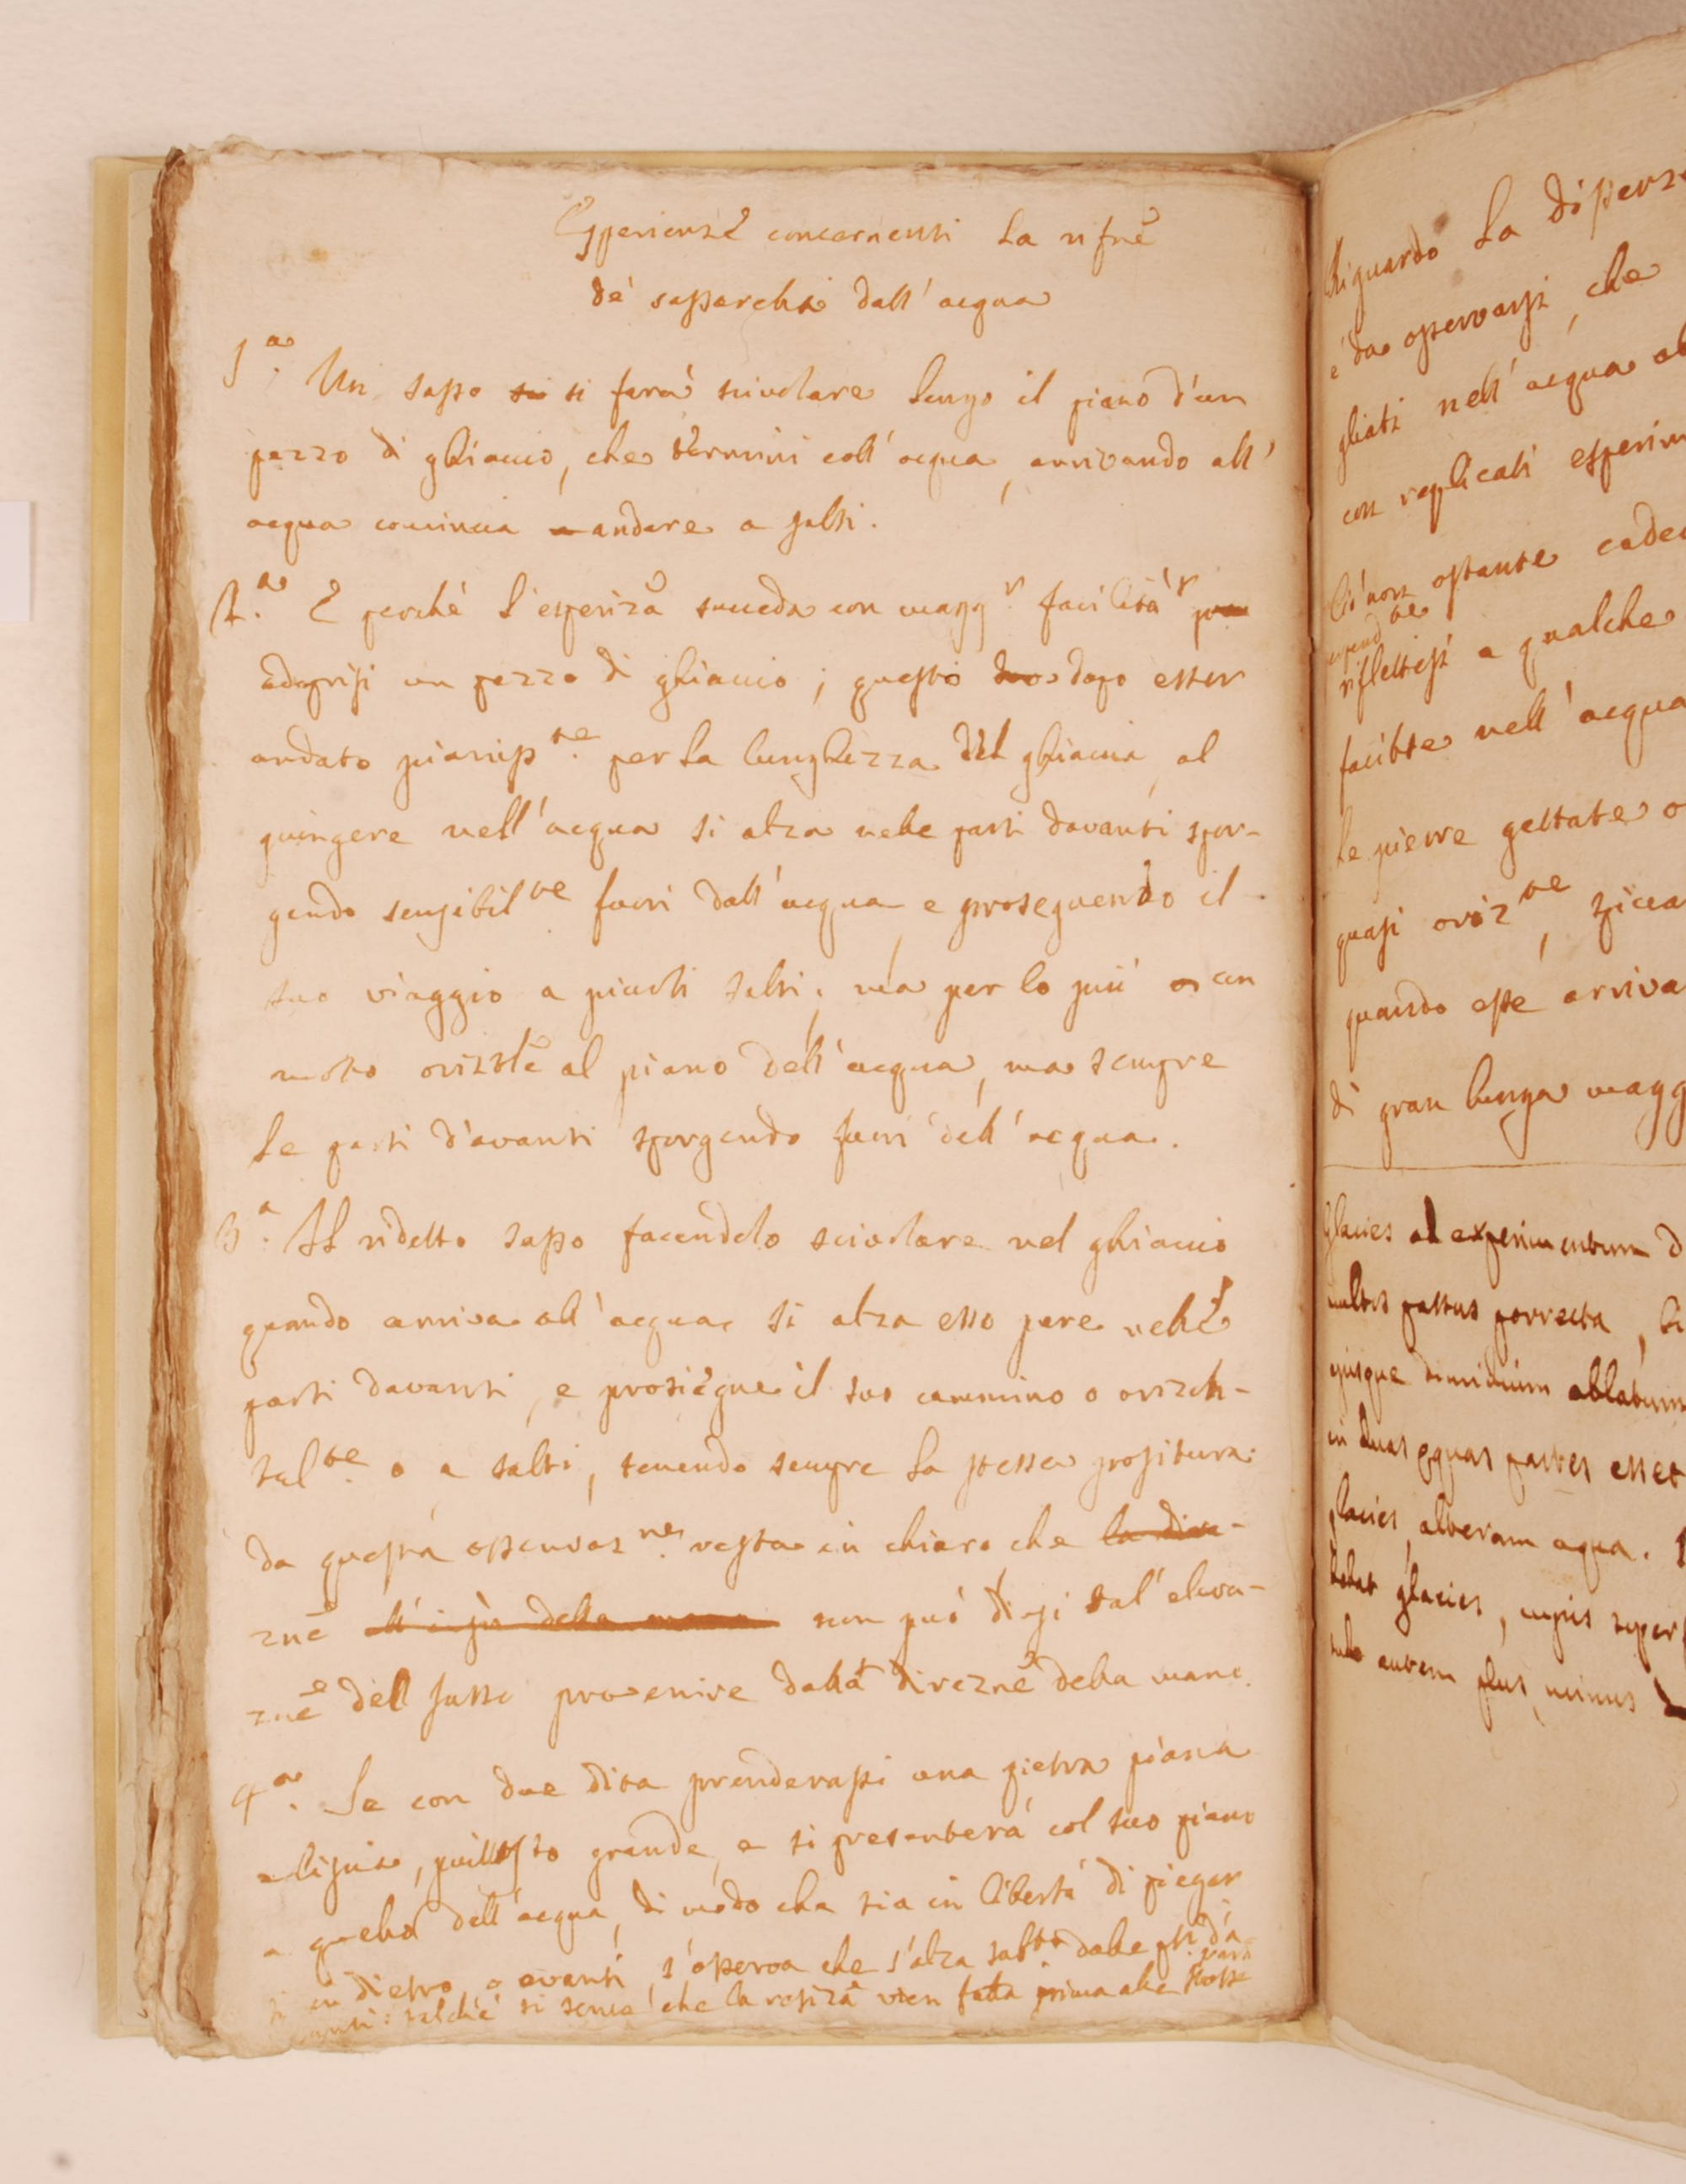 Esperienze concernenti la rifne
de' sassarelli dall'acqua
1.a Un sasso si si farà scivolare lungo il piano d'un
pezzo di ghiaccio, che termini coll'acqua, arrivando all'
acqua comincia a andare a salti.
2.a E perché l'esperiza succeda con magg.r facilità
adoprisi un pezzo di ghiaccio; questo dopo esser
andato pianiss.te per la lunghezza del ghiaccio, al
giungere nell'acqua si alza nelle parti davanti spor-
gendo sensibil.te fuori dall'acqua e proseguendo il
suo viaggio a piccoli salti, ma per lo più con
moto orizzle al piano dell'acqua, ma sempre
le parti d'avanti sporgendo fuori dell'acqua.
3.a Il ridetto sasso facendolo scivolare nel ghiaccio
quando arriva all'acqua si alza esso pure nelle
parti davanti, e prosiegue il suo cammino o orizon-
tal.te o a salti, tenendo sempre la stessa positura.
da questa osservaz.ne resta in chiaro che la dire-
zne della mano non può dirsi tal'eleva-
zne del sasso provenire dalla direzne della mano.
4.a Se con due dita prenderassi una pietra piana
e liscia, piuttosto grande, e si presenterà col suo piano
a quello dell'acqua, di modo che sia in libertà di piegar
si in dietro, o avanti, s'osserva che s'alza sub.to dalle pti d'a
vanti: talché si sente che la resiza vien fatta prima alle
Riguardo la
è da osservarsi, che
gliati nell'acqua
con replicati
Ciò non ostante
riflettesi a qualche
nell'acqua
le pietre gettate o
quasi oriz.te,
quando esse
di gran lunga
Glacies ad experimentum
multos passus porrecta,
dimidium
in duas equas partes esset
glacies, alteram aqua.
glacies, cujus
autem plus, minus